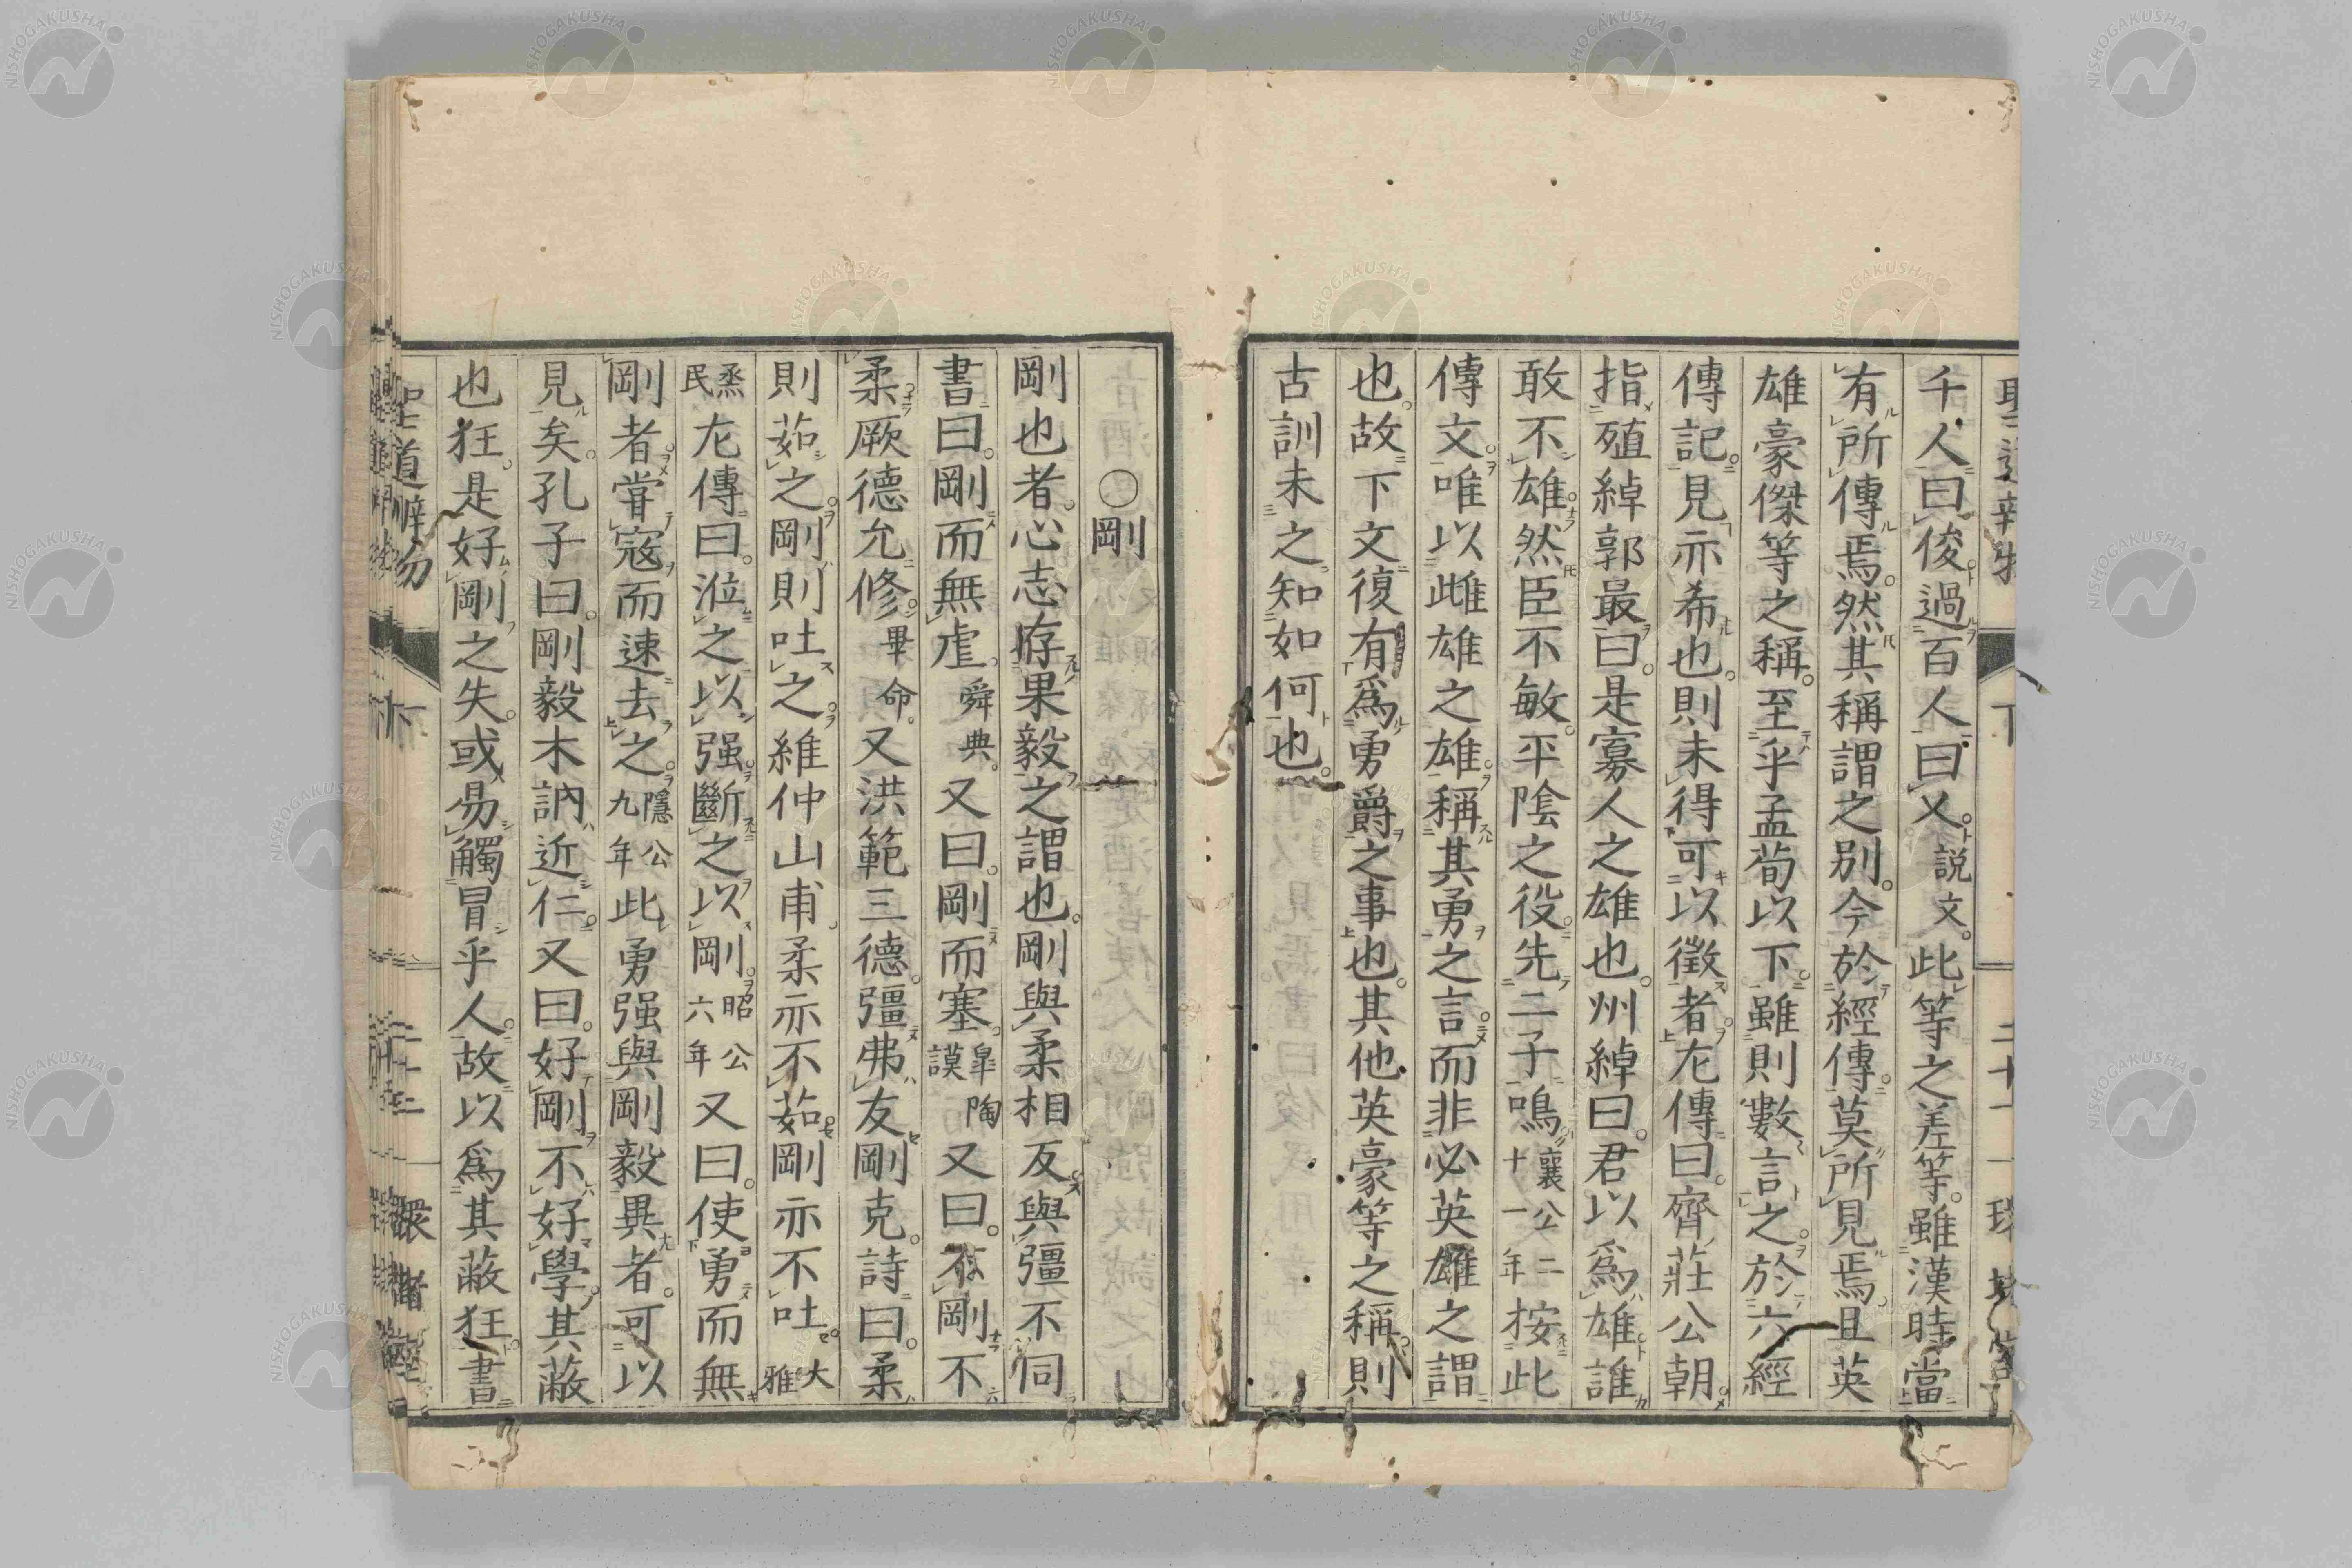 千人曰俊過百人曰乂説文此等之差等雖漢時當
有所傳焉然其稱謂之別今於經傳莫所見焉且英
雄豪傑等之稱至乎孟荀以下雖則數言之於六經
傳記見亦希也則未得可以徵者左傳曰齊莊公朝
指殖綽郭最曰是寡人之雄也州綽曰君以爲雄誰
敢不雄然臣不敏平陰之役先二子鳴襄公二十一年按此
傳文唯以雌雄之雄稱其勇之言而非必英雄之謂
也故下文復有爲勇爵之事也其他英豪等之稱則
古訓未之知如何也
○剛
剛也者心志存果毅之謂也剛與柔相反與彊不同
書曰剛而無虐舜典又曰剛而塞皐陶謨又曰不剛不
柔厥德允修畢命又洪範三德彊弗友剛克詩曰柔
則茹之剛則吐之維仲山甫柔亦不茹剛亦不吐大雅
烝民左傳曰涖之以强斷之以剛昭公六年又曰使勇而無
剛者嘗寇而速去之隱公九年此勇强與剛毅異者可以
見矣孔子曰剛毅木訥近仁又曰好剛不好學其蔽
也狂是好剛之失或易觸冒乎人故以爲其蔽狂書